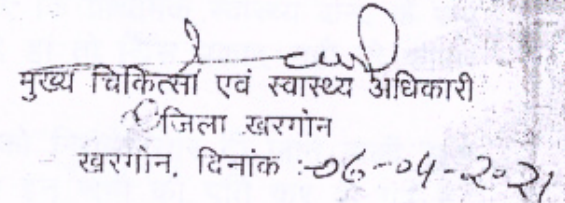 मुख्य चिकित्सा एवं स्वास्थ्य अधिकारी
जिला खरगोन
खरगोन, दिनांक :-06-04-2021